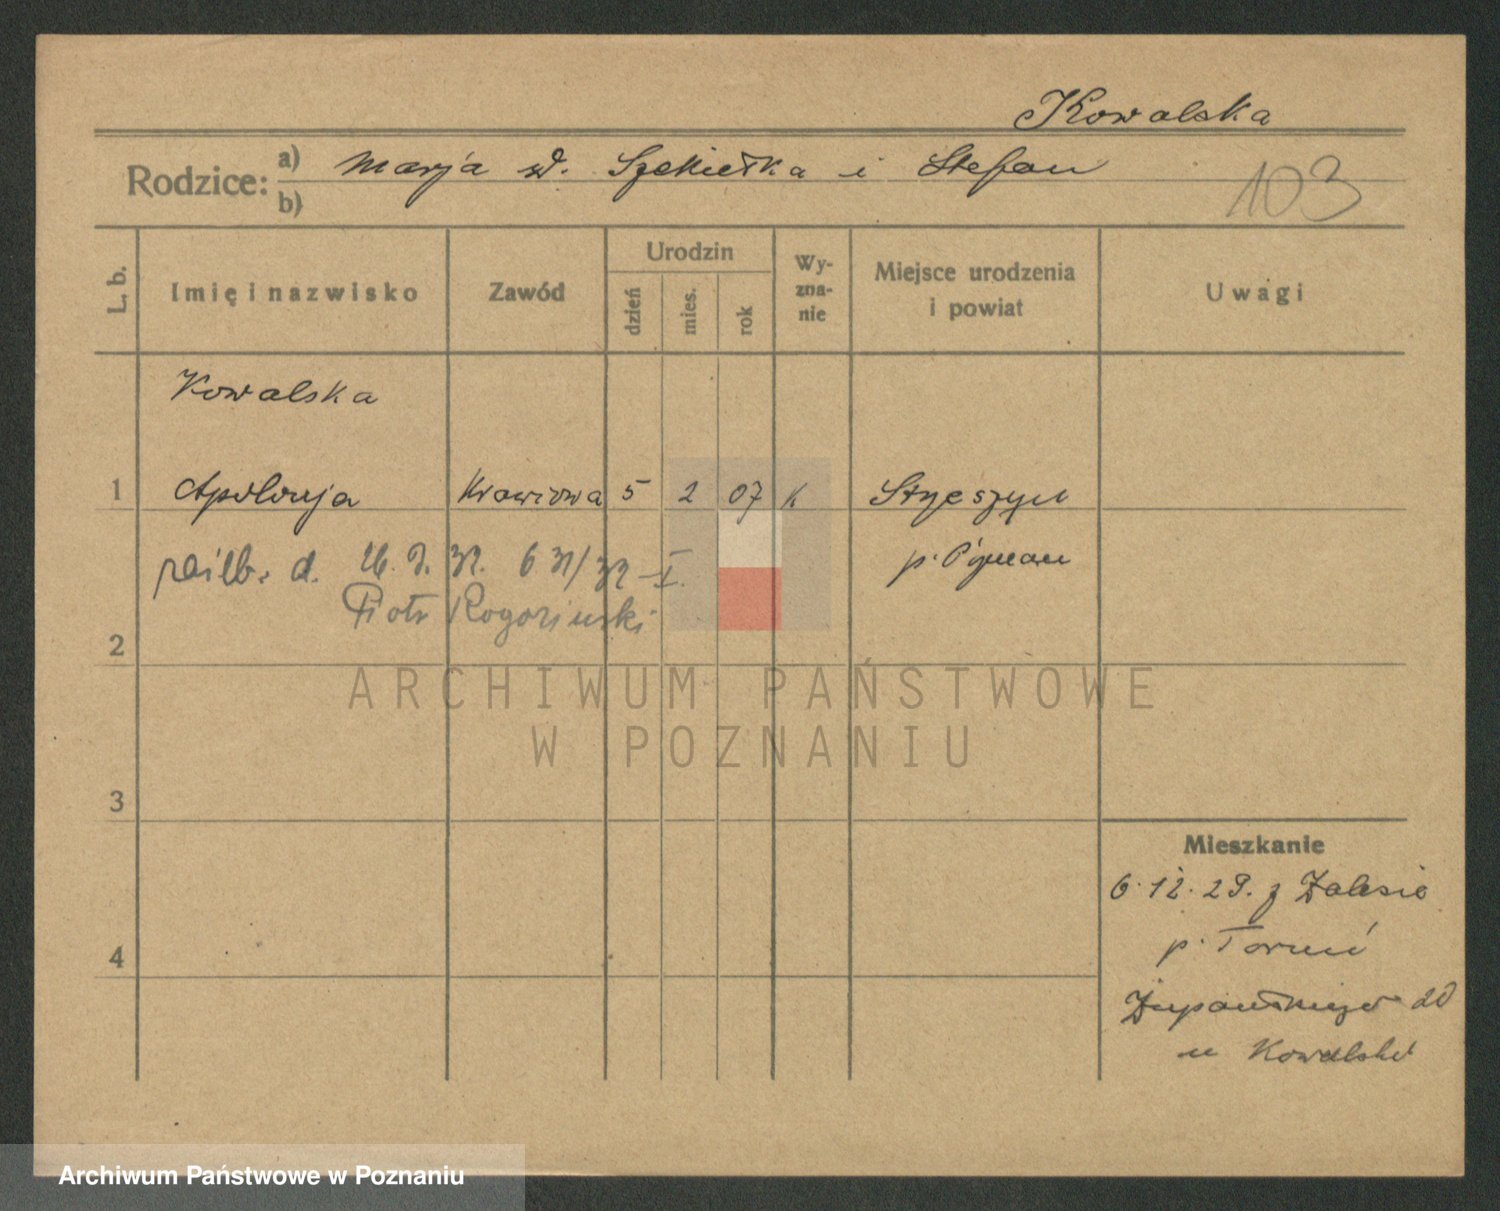 Kowalska
Rodzice: a) Marja zd. Szekiełka i Stefan
b)
103
L. b. Imię i nazwisko Zawód Urodzin dzień mies. rok Wyznanie Miejsce urodzenia i powiat Uwagi
Kowalska
1 Apolonja Krawcowa 5 2 07 k Strzeszyn
p. Poznań
d. 26. 9. 32. 631/32 I.
Piotr Rogoziński
2
ARCHIWUM PAŃSTWOWE
W POZNANIU
3
Mieszkanie
6.12.29. z Zalesie
p. Toruń
4
Żupańskiego 20
u Kowalski
Archiwum Państwowe w Poznaniu